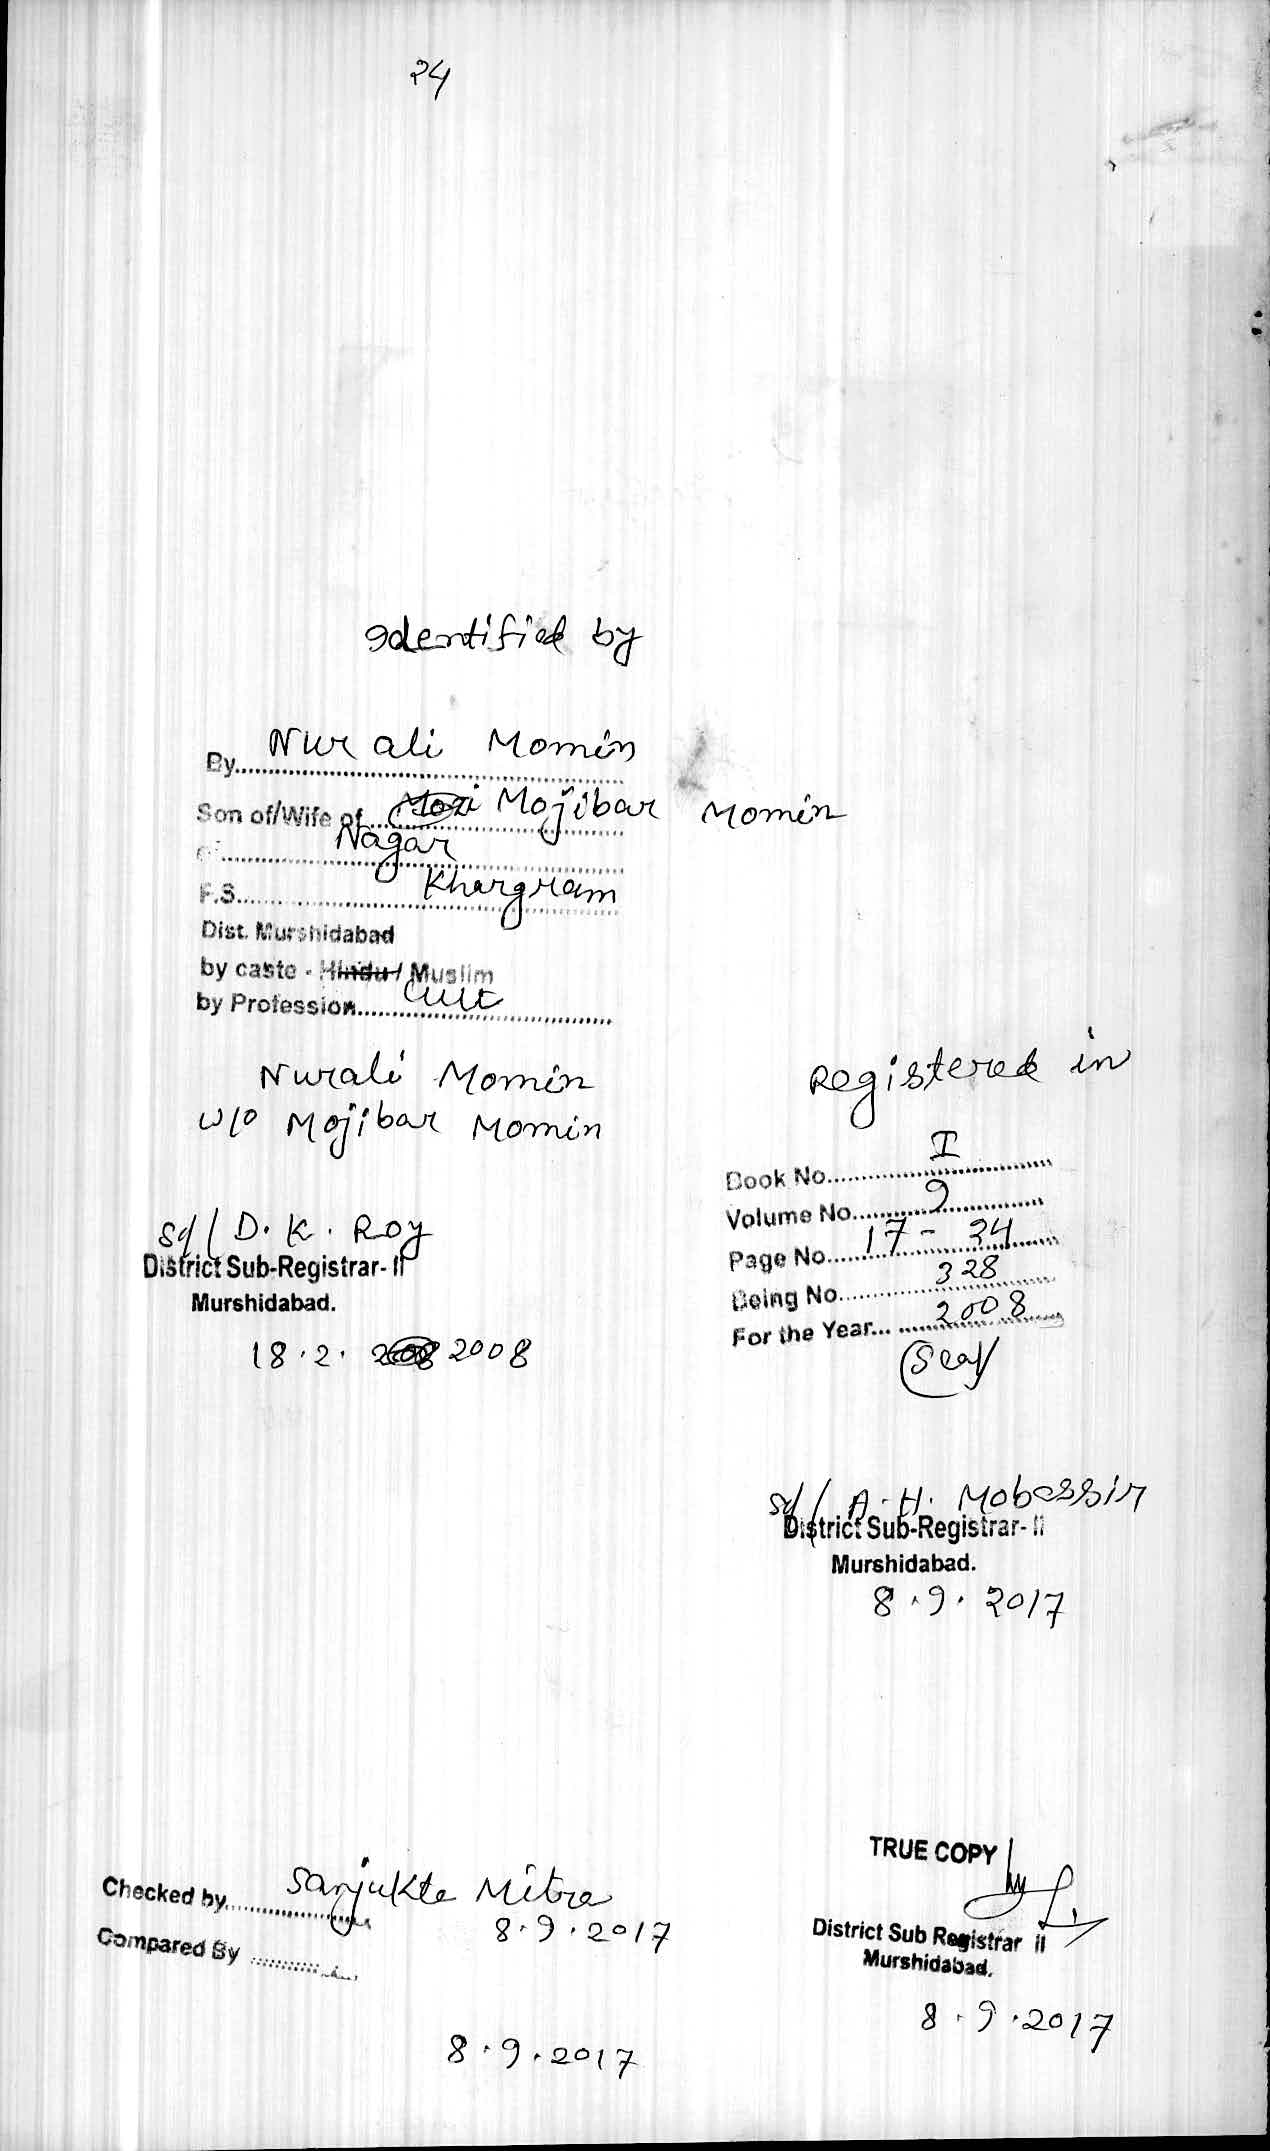 24
Identified by
By Nur ali Momin
Son of/Wife of Mojibar Momin
of Nagar
P.S. Khargram
Dist. Murshidabad
by caste - Hindu / Muslim
by Profession Cult
Nurali Momin
w/o Mojibar Momin
Sd/ D. K. Roy
District Sub-Registrar- II
Murshidabad.
18.2. 2008
Registered in
Book No. I
Volume No. 9
Page No. 17 - 24
Being No. 328
For the Year... 2008
(Seal)
Sd/ A. H. Mobassir
District Sub-Registrar- II
Murshidabad.
8.9.2017
Checked by Sanjukta Mitra
8.9.2017
Compared By
8.9.2017
TRUE COPY
District Sub Registrar II
Murshidabad.
8.9.2017